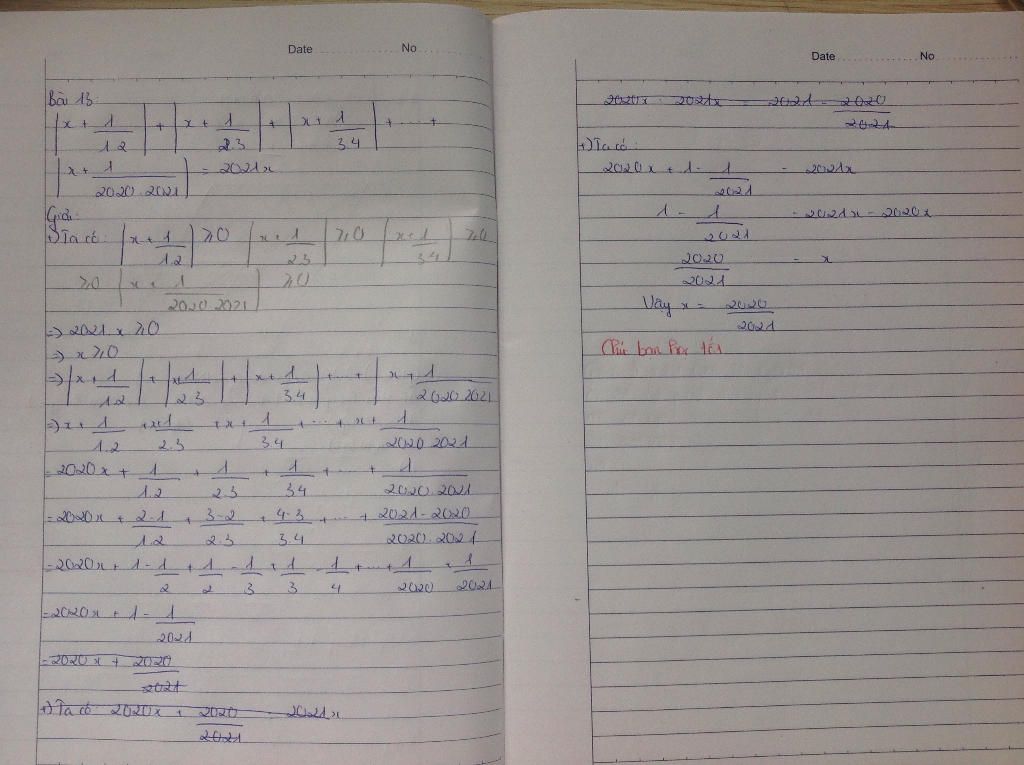 Date No
Bài 13:
|x + 1/1.2| + |x + 1/2.3| + |x + 1/3.4| + .... +
|x + 1/2020.2021| = 2021x
Giải:
+) Ta có: |x + 1/1.2| ⩾0 |x + 1/2.3| ⩾0 |x + 1/3.4| ⩾0
⩾0 |x + 1/2020.2021| ⩾0
=> 2021.x ⩾0
=> x ⩾0
=> |x + 1/1.2| + |x + 1/2.3| + |x + 1/3.4| + ... + |x + 1/2020.2021
=> x + 1/1.2 + x + 1/2.3 + x + 1/3.4 + ... + x + 1/2020.2021
= 2020x + 1/1.2 + 1/2.3 + 1/3.4 + ... + 1/2020.2021
= 2020x + 2-1/1.2 + 3-2/2.3 + 4-3/3.4 + ... + 2021-2020/2020.2021
= 2020x + 1 - 1/2 + 1/2 - 1/3 + 1/3 - 1/4 + ... + 1/2020 + 1/2021
= 2020x + 1 - 1/2021
= 2020x + 2020/2021
+) Ta có 2020x + 2020/2021 = 2021x
Date No
2020x - 2021x = 2021 - 2020/2021
+) Ta có:
2020x + 1 - 1/2021 = 2021x
1 - 1/2021 = 2021x - 2020x
2020/2021 = x
Vậy x = 2020/2021
Chúc bạn học tốt